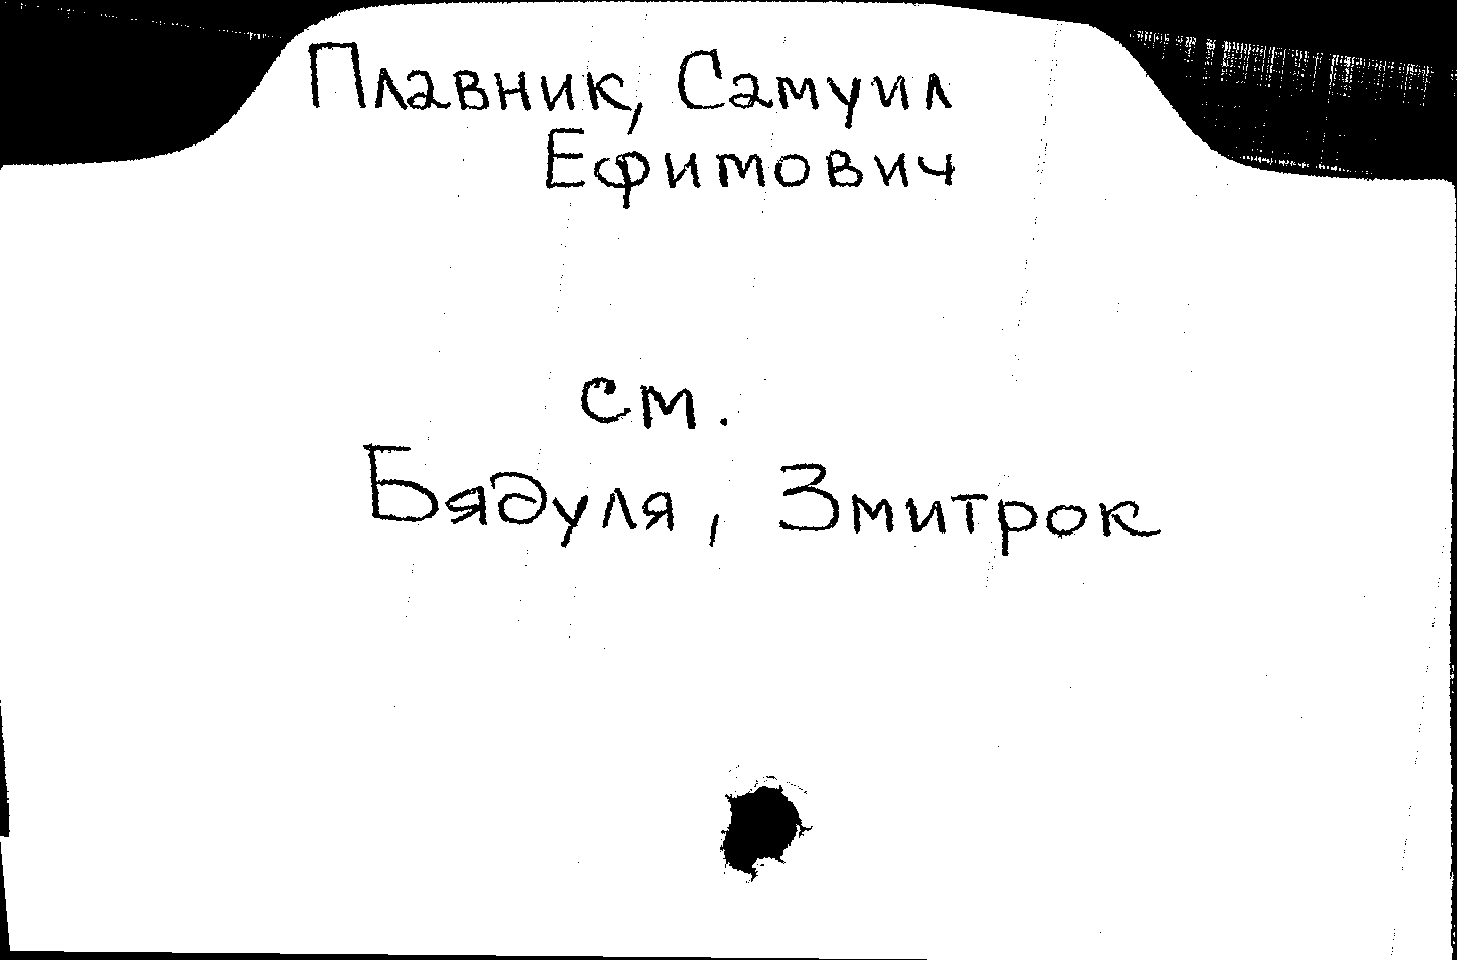 Плавник, Самуил
Ефимович
см.
Бядуля, Змитрок